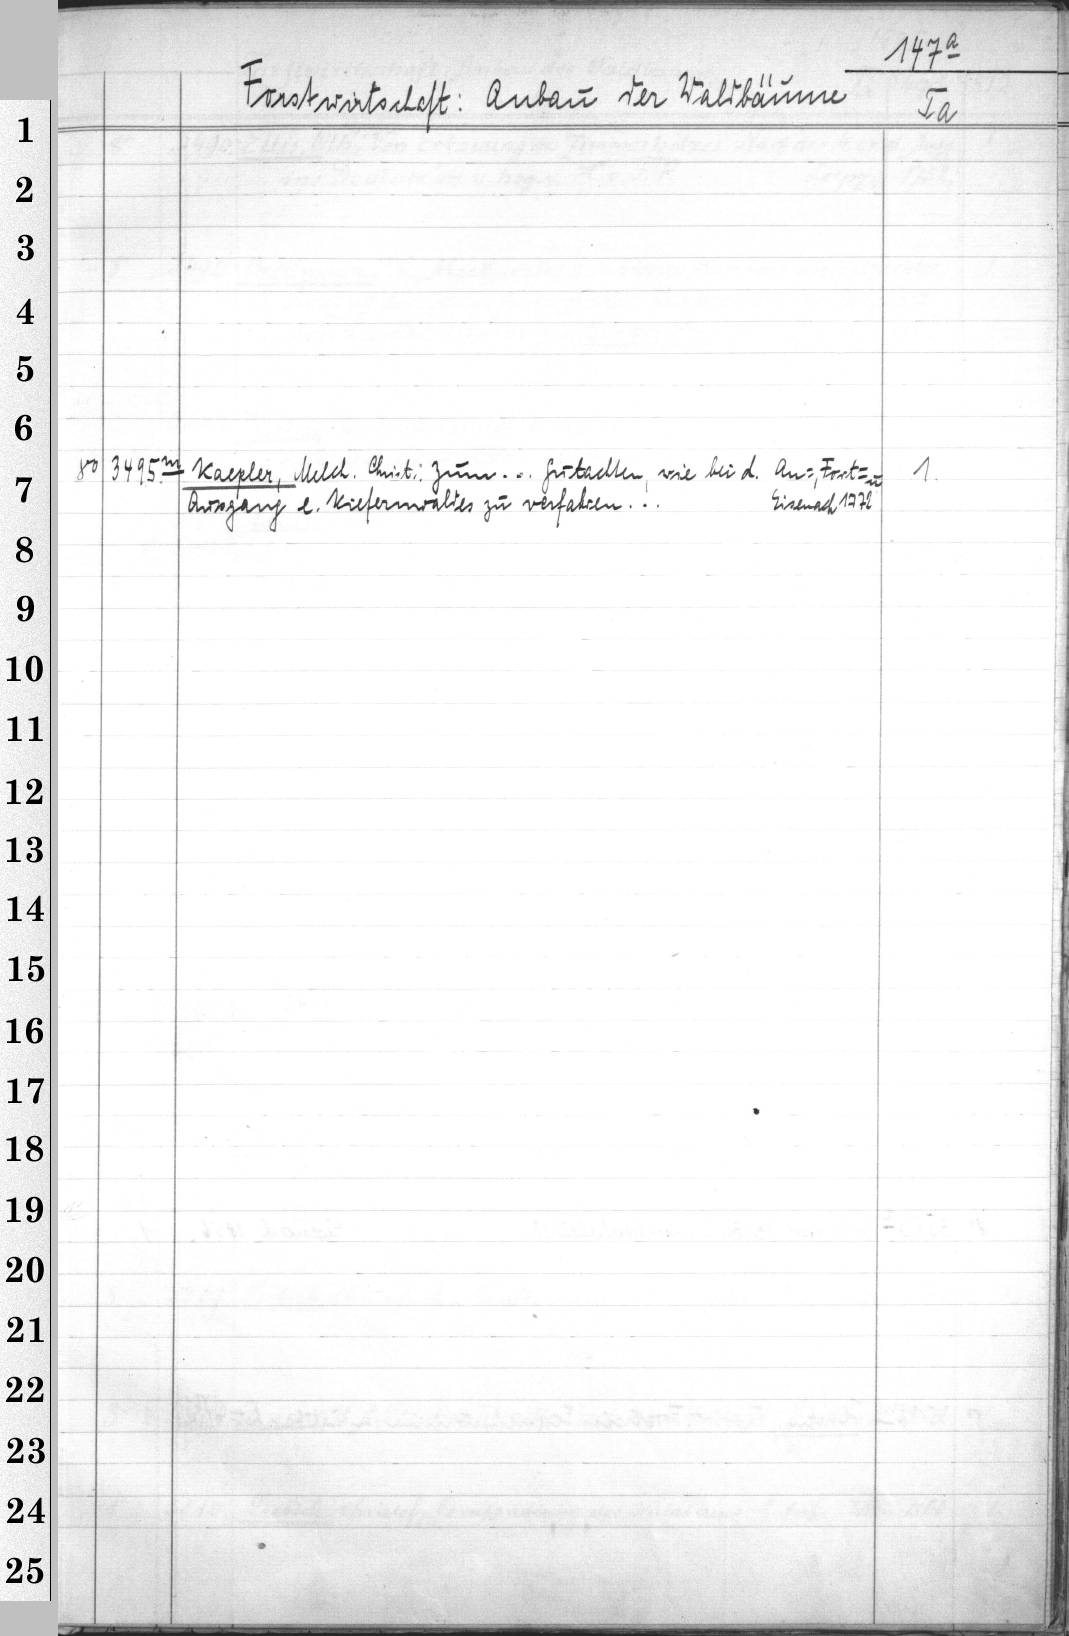 147a
Forstwirtschaft: Anbau der Waldbäume
Ia
1
2
3
4
5
6
80 3495m Kaepler, Melch. Christ.: Zum... Gutachten, wie bei d. An=, Fort= u 1.
7
Ausgang e. Kiefernwaldes zu verfahren... Eisenach 1772
8
9
10
11
12
13
14
15
16
17
18
19
20
21
22
23
24
25